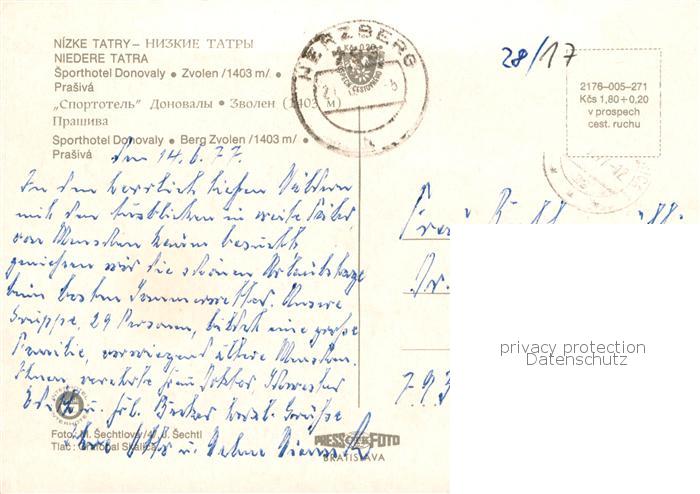 NÍZKE TATRY – НИЗКИЕ ТАТРЫ
NIEDERE TATRA
Športhotel Donovaly • Zvolen /1403 m/ •
Prašivá
„Спортотель" Доновалы • Зволен (1403 м)
Прашива
Sporthotel Donovaly • Berg Zvolen /1403 m/ •
Prašivá
HERZBERG
Kčs 0,20
28/17
2176–005–271
Kčs 1,80+0,20
v prospech
cest. ruchu
den 14.6.77.
In den herrlich tiefen Wäldern
mit den Ausblicken in weite Täler,
von Menschen kaum besucht
genießen wir die schönen Urlaubstage
beim besten Sommerwetter. Unsere
Gruppe, 29 Personen, bildet eine große
Familie, vorwiegend ältere Menschen.
Ihnen, verehrte Frau Doktor, Schwester
u. Frl. Becker herzl. Grüße
Ihre u.
Dr.
793
privacy protection
Datenschutz
Foto: M. Šechtlová/4/, J. Šechtl
Tlač: Grafobal Skalica
PRESSFOTO
BRATISLAVA